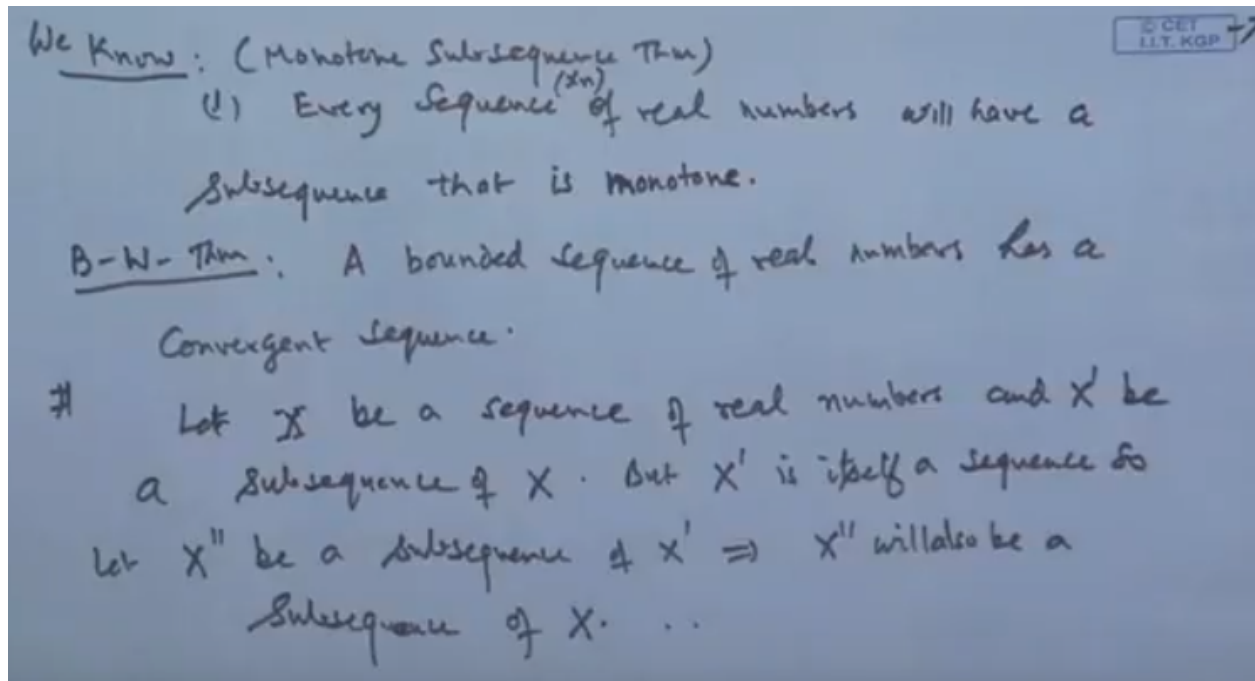 We Know: (Monotone Subsequence Thm)
© CET
I.I.T. KGP
(1) Every Sequence (xn) of real numbers will have a
Subsequence that is monotone.
B-W-Thm: A bounded sequence of real numbers has a
Convergent sequence.
# Let X be a sequence of real numbers and X' be
a subsequence of X. But X' is itself a sequence so
Let X" be a subsequence of X' ⇒ X" will also be a
Subsequence of X. ..